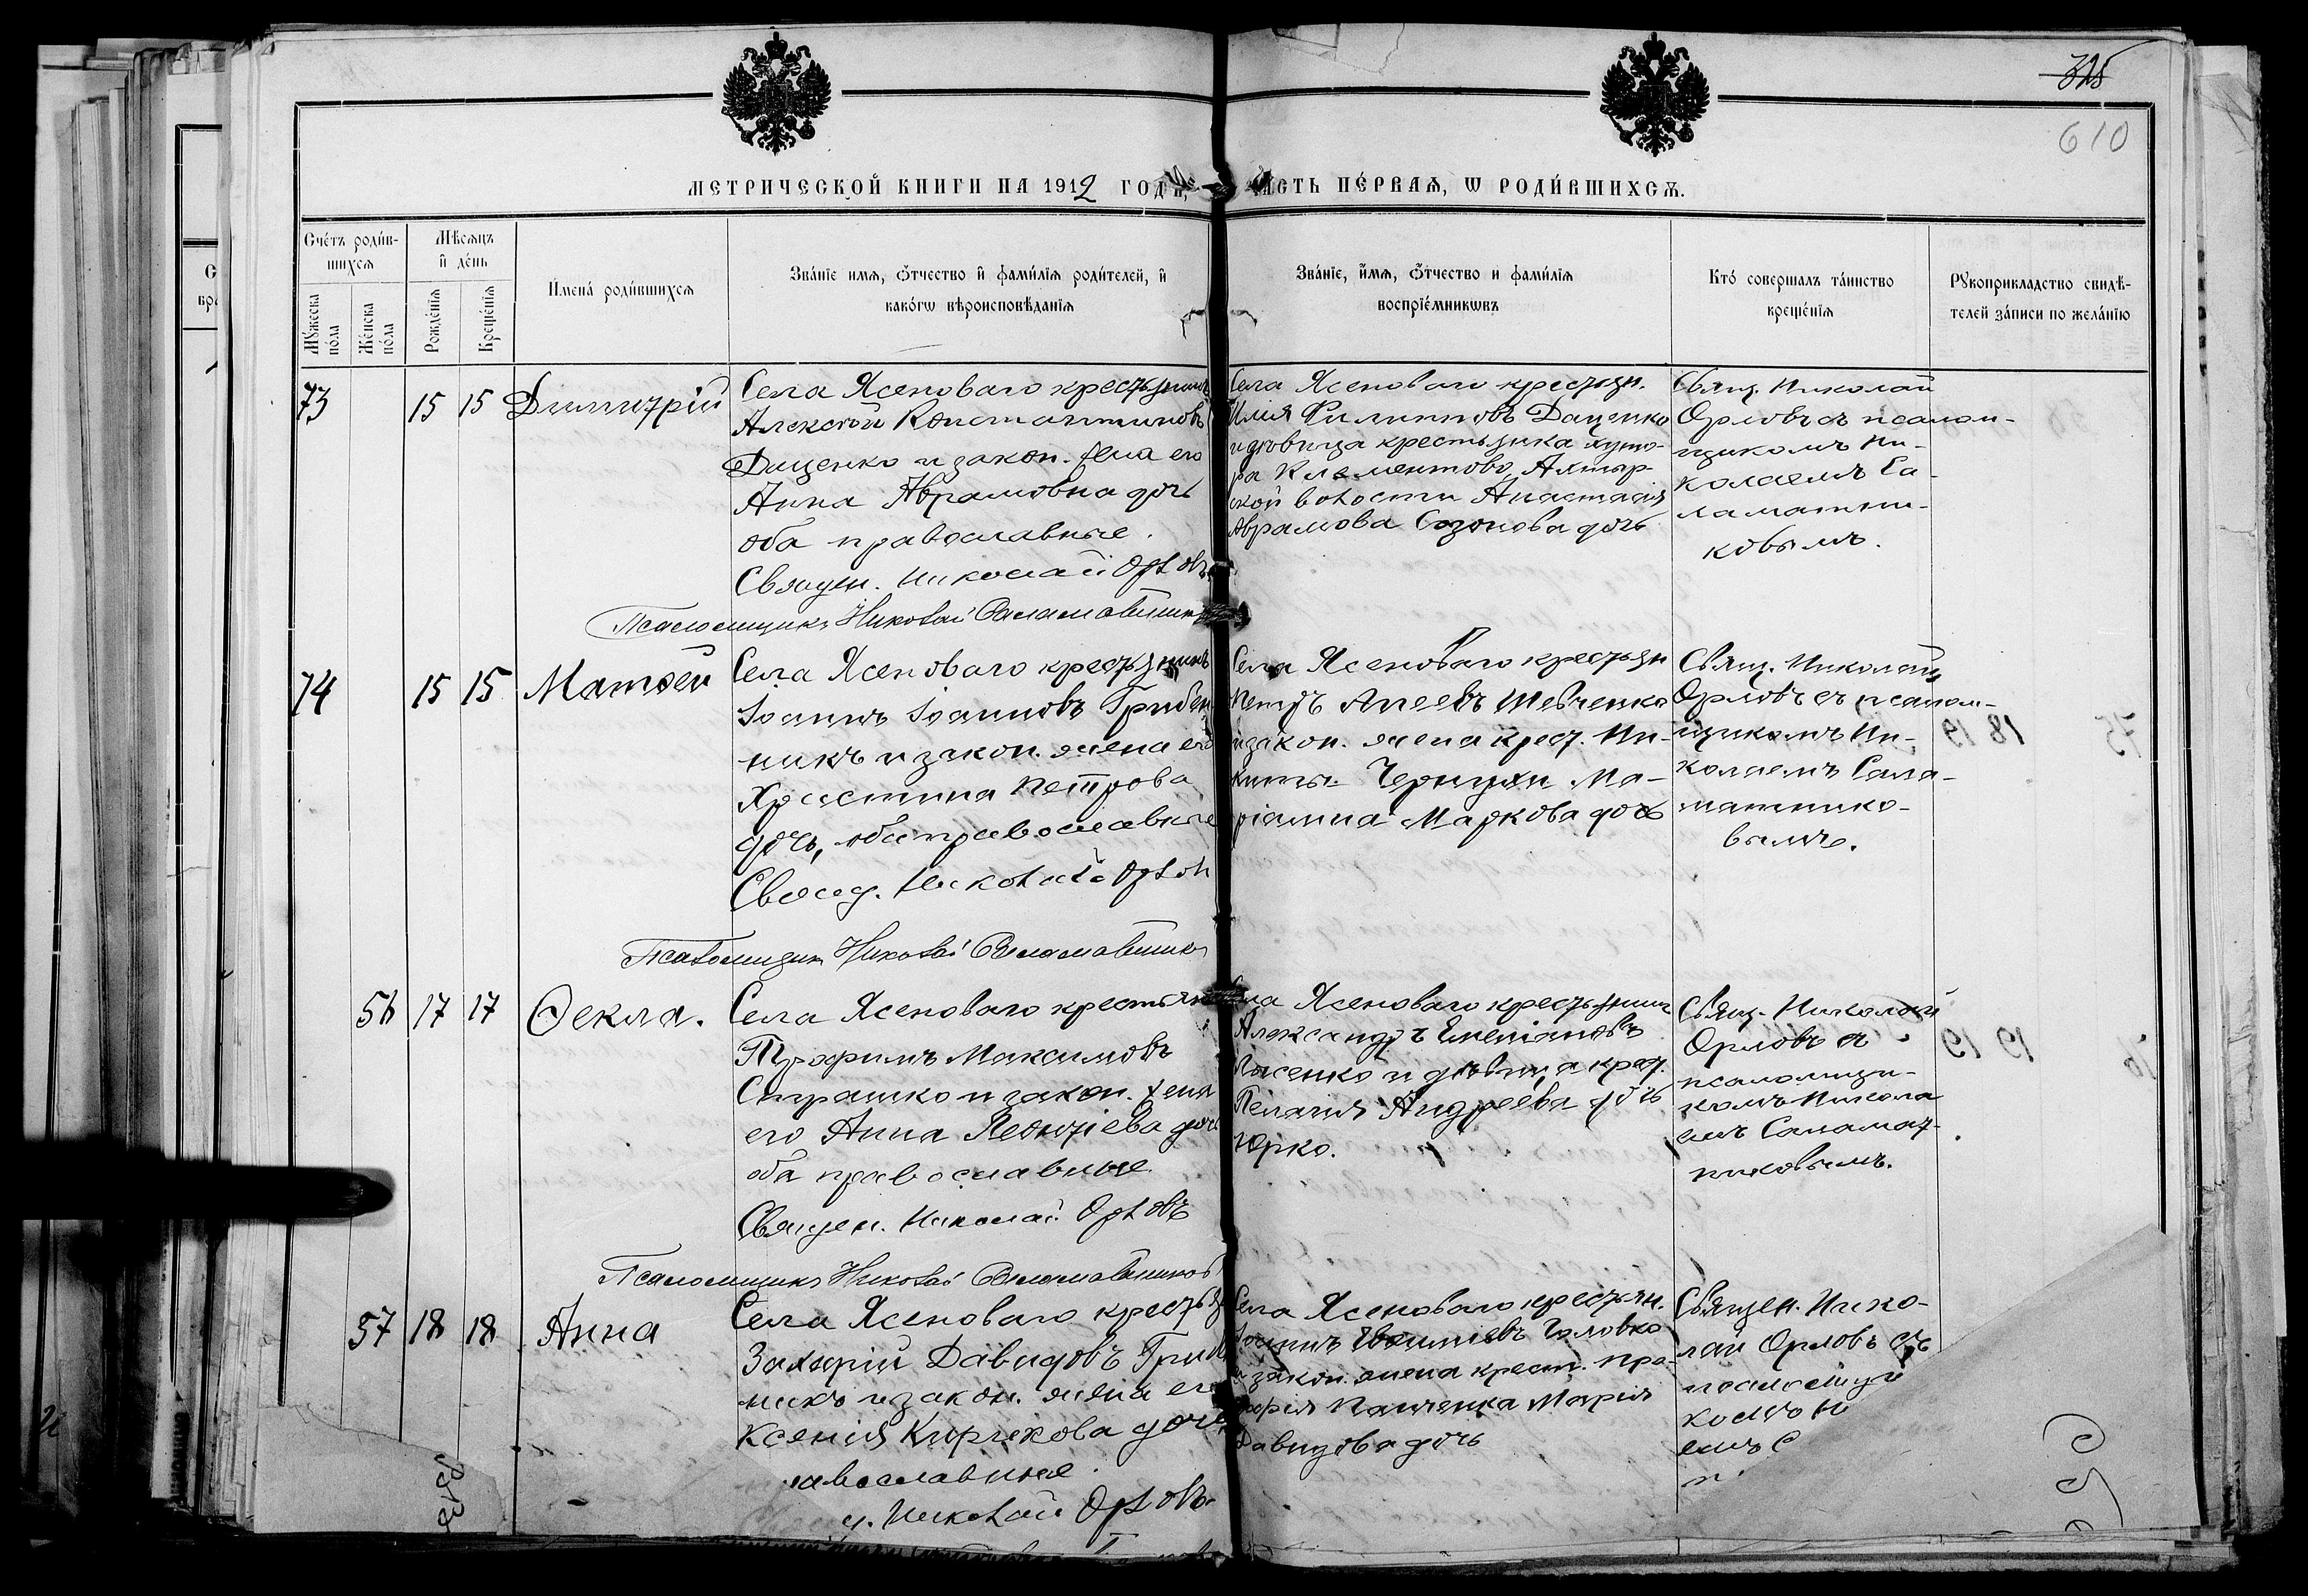 325
610
МЕТРИЧЕСКОЙ КНИГИ НА 1912 ГОДЪ, ЧАСТЬ ПЕ́РВАЯ, Ѡ РОДИ́ВШИХСѦ.
Сче́тъ роди́в-
шихсѧ
Мꙋ́жеска по́ла
Же́нска по́ла
Мѣ́сѧцъ
и҆ де́нь
Рожде́нїѧ
Креще́нїѧ
И҆мена́ роди́вшихсѧ
Зва́нїе имѧ, ѻ҆́тчество и҆ фами́лїѧ роди́телей, и҆
како́гѡ вѣроисповѣ́данїѧ
Зва́нїе, и҆́мѧ, ѻ҆́тчество и фами́лїѧ
воспрїе́мникѡвъ
Кто́ соверша́лъ та́инство
креще́нїѧ
Рꙋкоприкладство свидѣ́-
телей за́писи по жела́нїю
73
15 15 Димитрій
Села Ясеноваго крестьянинъ
Алексѣй Константиновъ
Даценко и закон. жена его
Анна Аврамовна дочь
оба православные.
Священ. Николай Орловъ
Псаломщикъ Николай Саламатник
Села Ясеноваго крестьян.
Илія Филипповъ Даценко
и довица крестьянка хуто-
ра Климентово, Ахтыр-
ской волости Анастасія
Аврамова Созонова дочь
Свящ. Николай
Орловъ съ псалом-
щикомъ Ни-
колаемъ Са-
ламатни-
ковымъ.
74
15 15 Матѳей
Села Ясеноваго крестьянинъ
Іоаннъ Іоанновъ Гребен
никъ и закон. жена его
Христина Петрова
дочь, оба православные
Свящ. Николай Орлов
Псаломщик Николай Саламатник
Села Ясеноваго крестьян
Петръ Шевченко
и закон. жена крест. Ни-
киты Ма-
ріамна Маркова дочь
Свящ. Николай
Орловъ съ псалом-
щикомъ Ни-
колаемъ Сала-
матнико-
вымъ.
56 17 17 Ѳекла.
Села Ясеноваго крестьян
Трофимъ Максимовъ
Страшко и закон. жена
его Анна Леонтіева дочь
оба православные
Священ. Николай Орловъ
Псаломщикъ Николай Саламатников
Села Ясеноваго крестьянинъ
Александръ Емеліановъ
Лысенко и дѣвица крест.
Пелагія Андреева дочь
Юрко.
Свящ. Николай
Орловъ съ
псаломщи-
комъ Никола
емъ Саламат-
никовымъ.
57 18 18 Анна
Села Ясеноваго крестья
Захарій Давидовъ Греб
никъ и закон. жена его
Ксенія Кирикова дочь
авославные.
Николай Орловъ
Села Ясеноваго крестьян.
Іоаннъ Головко
и закон. жена крест. Про-
кофія Панченка Марія
Давидова дочь
Священ. Нико-
лай Орловъ съ
псаломщи
комъ Н
емъ С